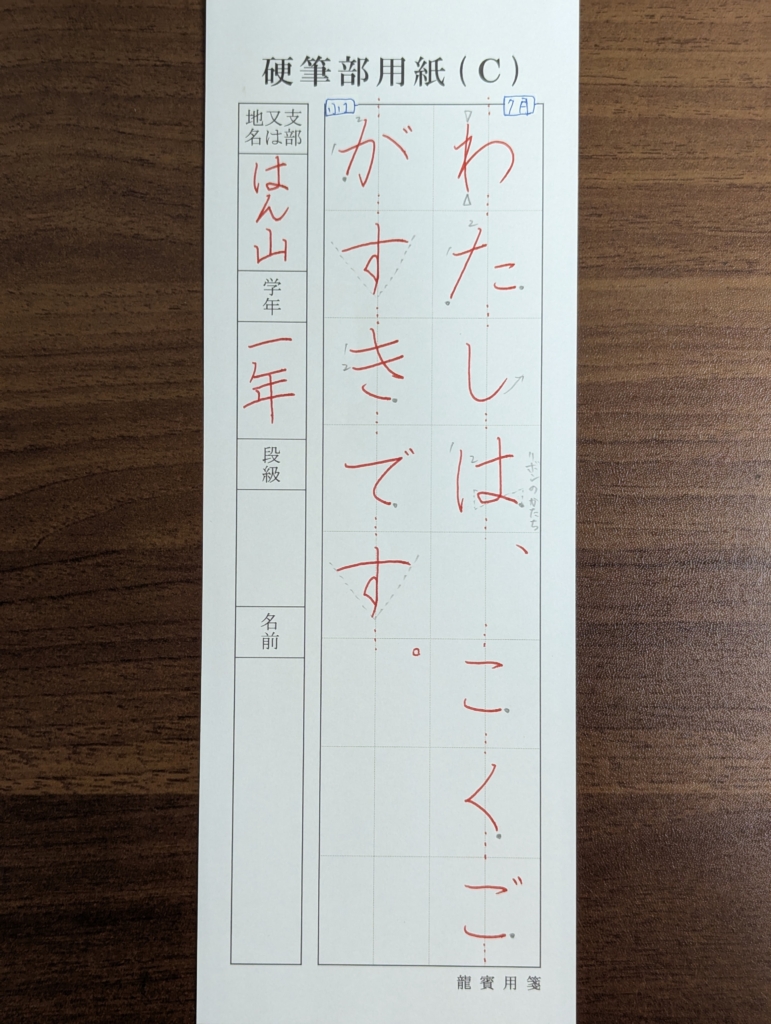 硬筆部用紙(C)
7月
小1
わたしは、こくご
がすきです。
リボンのかたち
支部又は地名
はん山
学年
一年
段級
名前
龍賓用箋